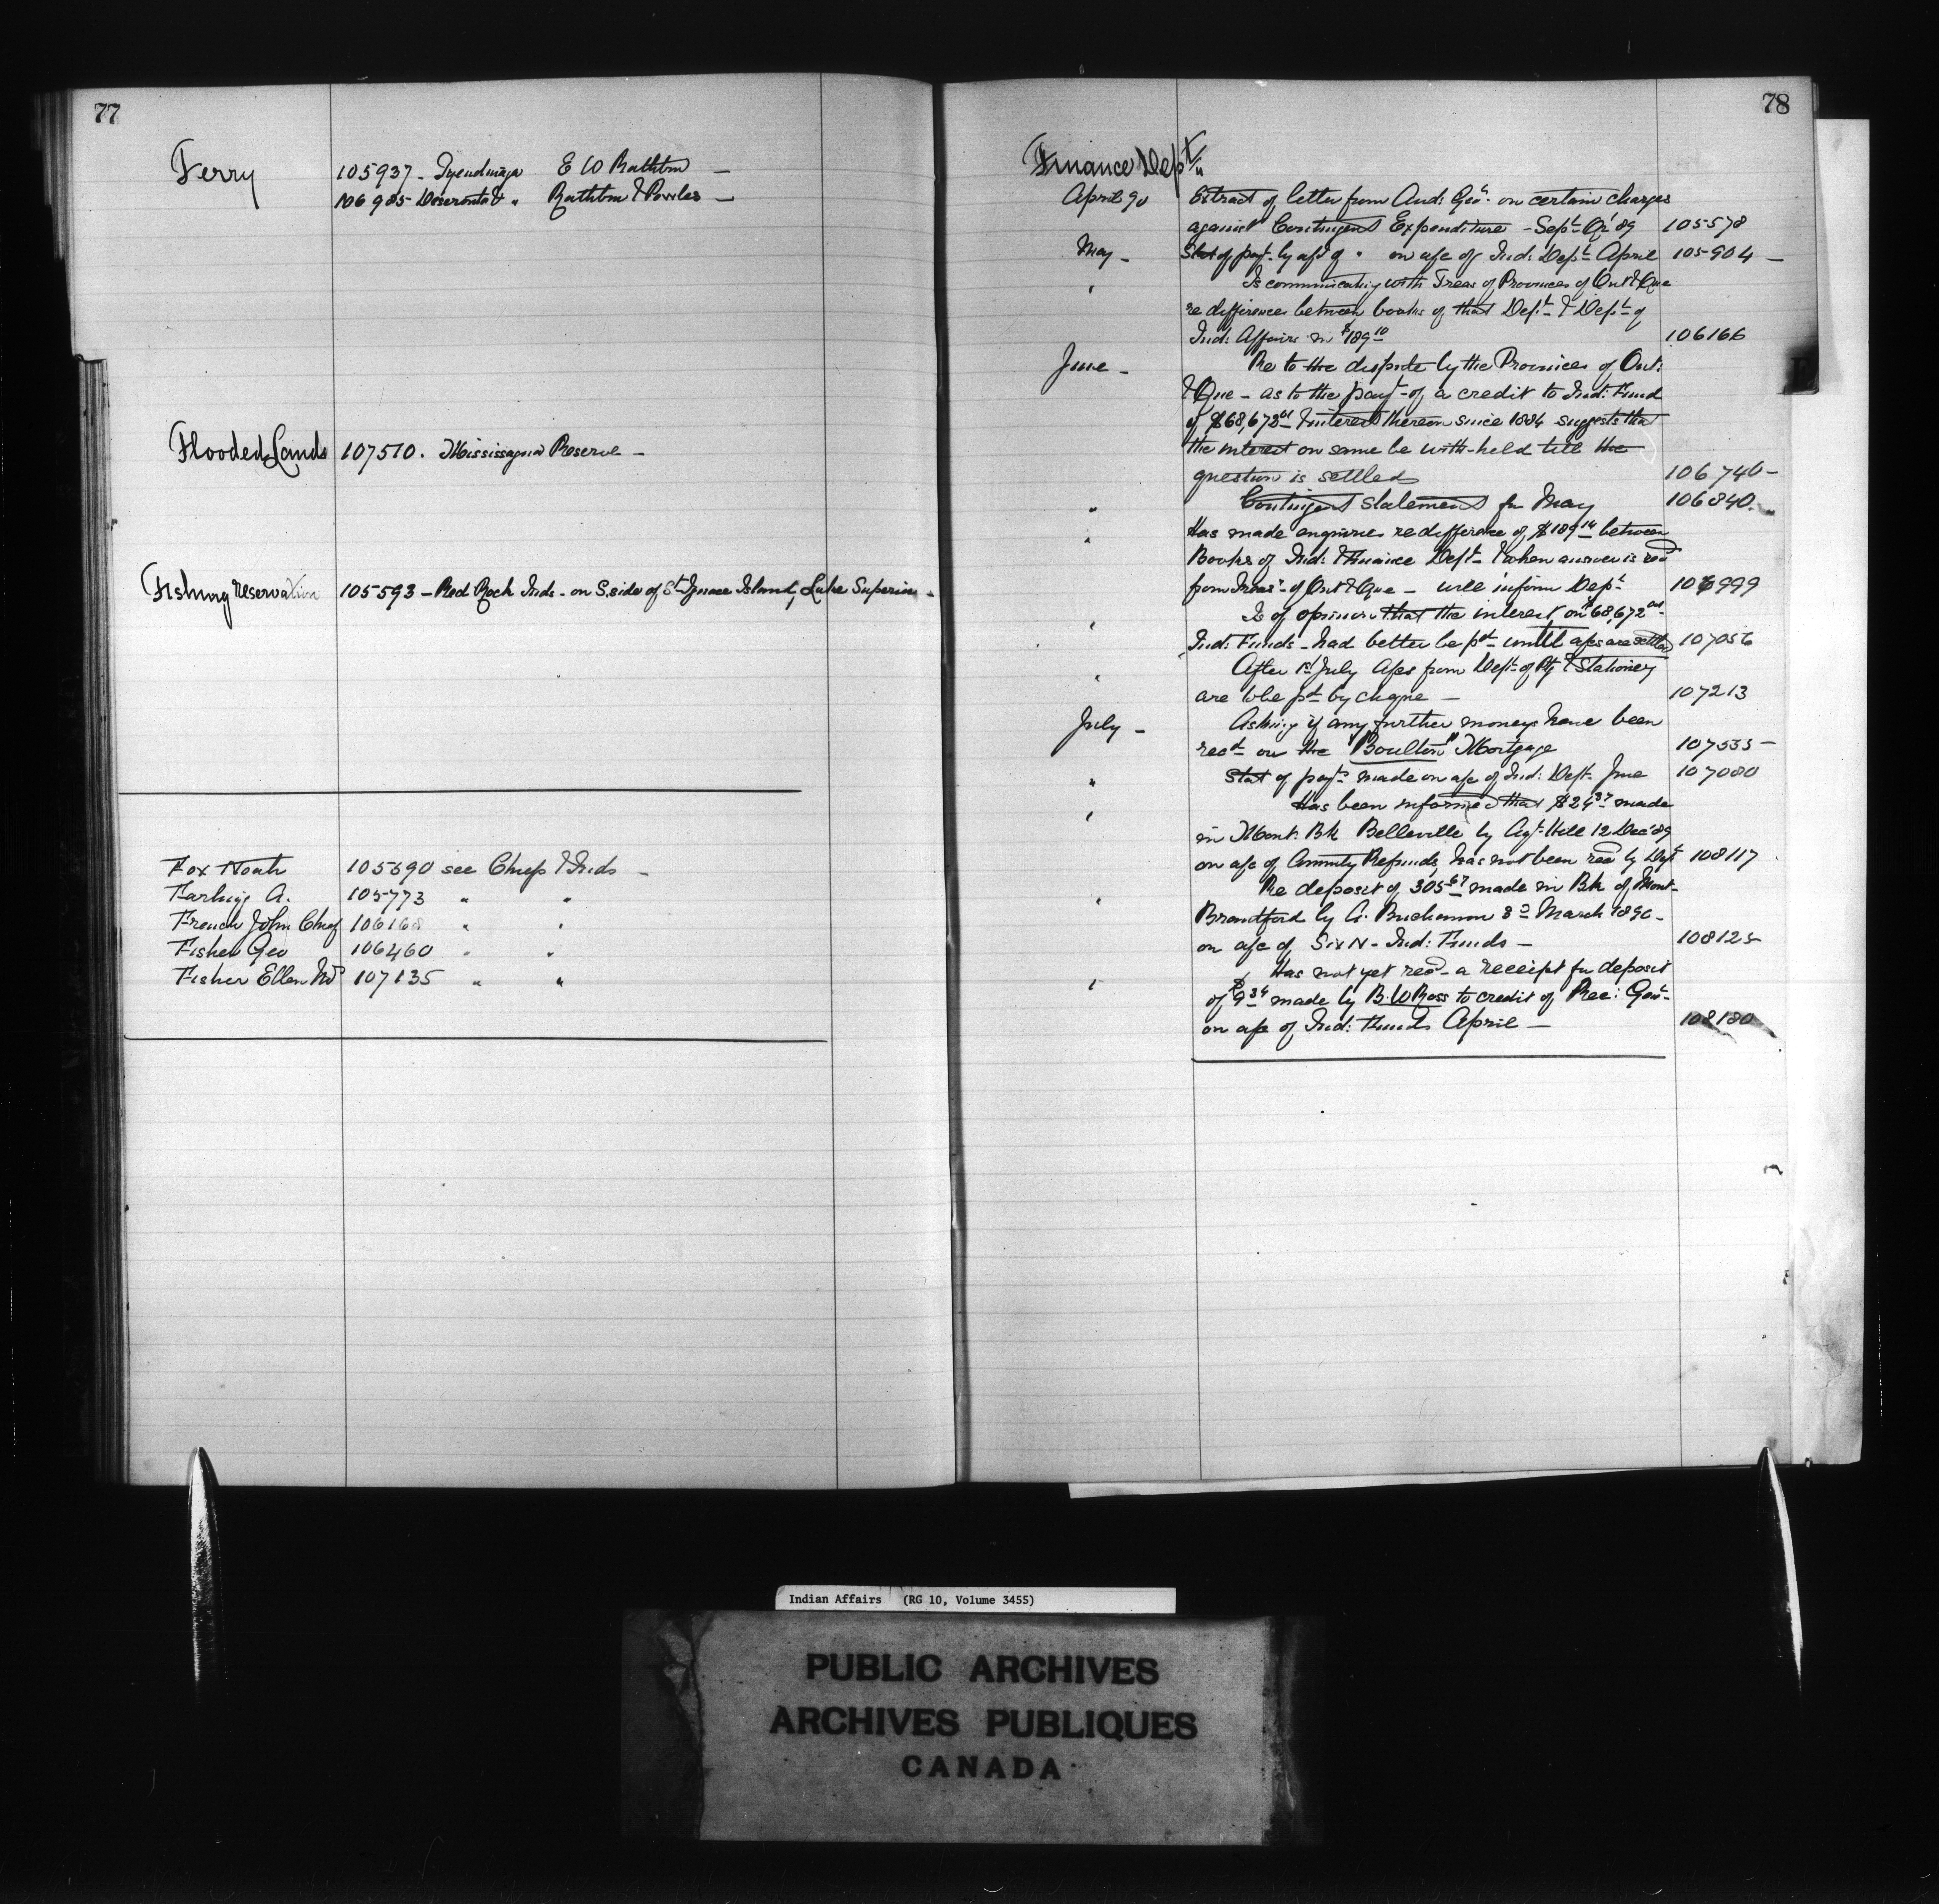 77
Ferry
105937 - Tyendinaga E W Rathbun -
106985 Deseronto & " Rathbun & Bowles -
Flooded Lands 107510. Mississagua Reserve -
Fishing reservation 105593 - Red Rock Inds - on S. side of St Ignace Island, Lake Superior -
Fox Noah 105690 see Chiefs & Inds -
A. 105773 " "
French John Chief 106168 " "
Fisher Geo 106460 " "
Fisher Ellen 107135 " "
78
Finance Dept
April 90 Extract of letter from Aud: Genl on certain charges
against Contingent Expenditure - Sept Qr '89 105578
May - Stat of payt by of " on a/c of Ind: Dept April 105904 -
" Is communicating with Treas of Provinces of Ont & Que
re differences between books of that Dept & Dept of
Ind: Affairs in $189 10 106166
June - Re to the dispute by the Provinces of Ont:
& Que - as to the payt of a credit to Ind: Fund
of $68,672 & interest thereon since 1884 suggests that
the interest on same be with-held till the
question is settled 106746 -
" Contingent Statement for May 106840.
" Has made enquiries re difference of $189 14 between
Books of Ind: & Finance Dept - & when answer is recd
from Treasr of Ont & Que - will inform Dept 106999
" Is of opinion that the interest on $68,672
Ind: Funds - had better be pd until a/cs are settled 107056
" After 1st July A/cs from Dept of Ptg & Stationery
are to be pd by cheque - 107213
July - Asking if any further moneys have been
recd on the "Boulton" Mortgage 107535 -
" Stat of payts made on a/c of Ind: Dept June 107080
" Has been informed that $24 37 made
in Mont: Bk Belleville by Agt Hill 12 Dec '89
on a/c of Annuity Refunds, has not been recd by Dept 108117
" Re deposit of 305 67 made in Bk of Mont -
Brantford by A. Buchanan 3d March 1890 -
on a/c of Six N - Ind: Funds - 108125
" Has not yet recd a receipt for deposit
of $9 34 made by B. W Ross to credit of Rec: Genl -
on a/c of Ind: Funds April - 108180
Indian Affairs (RG 10, Volume 3455)
PUBLIC ARCHIVES
ARCHIVES PUBLIQUES
CANADA